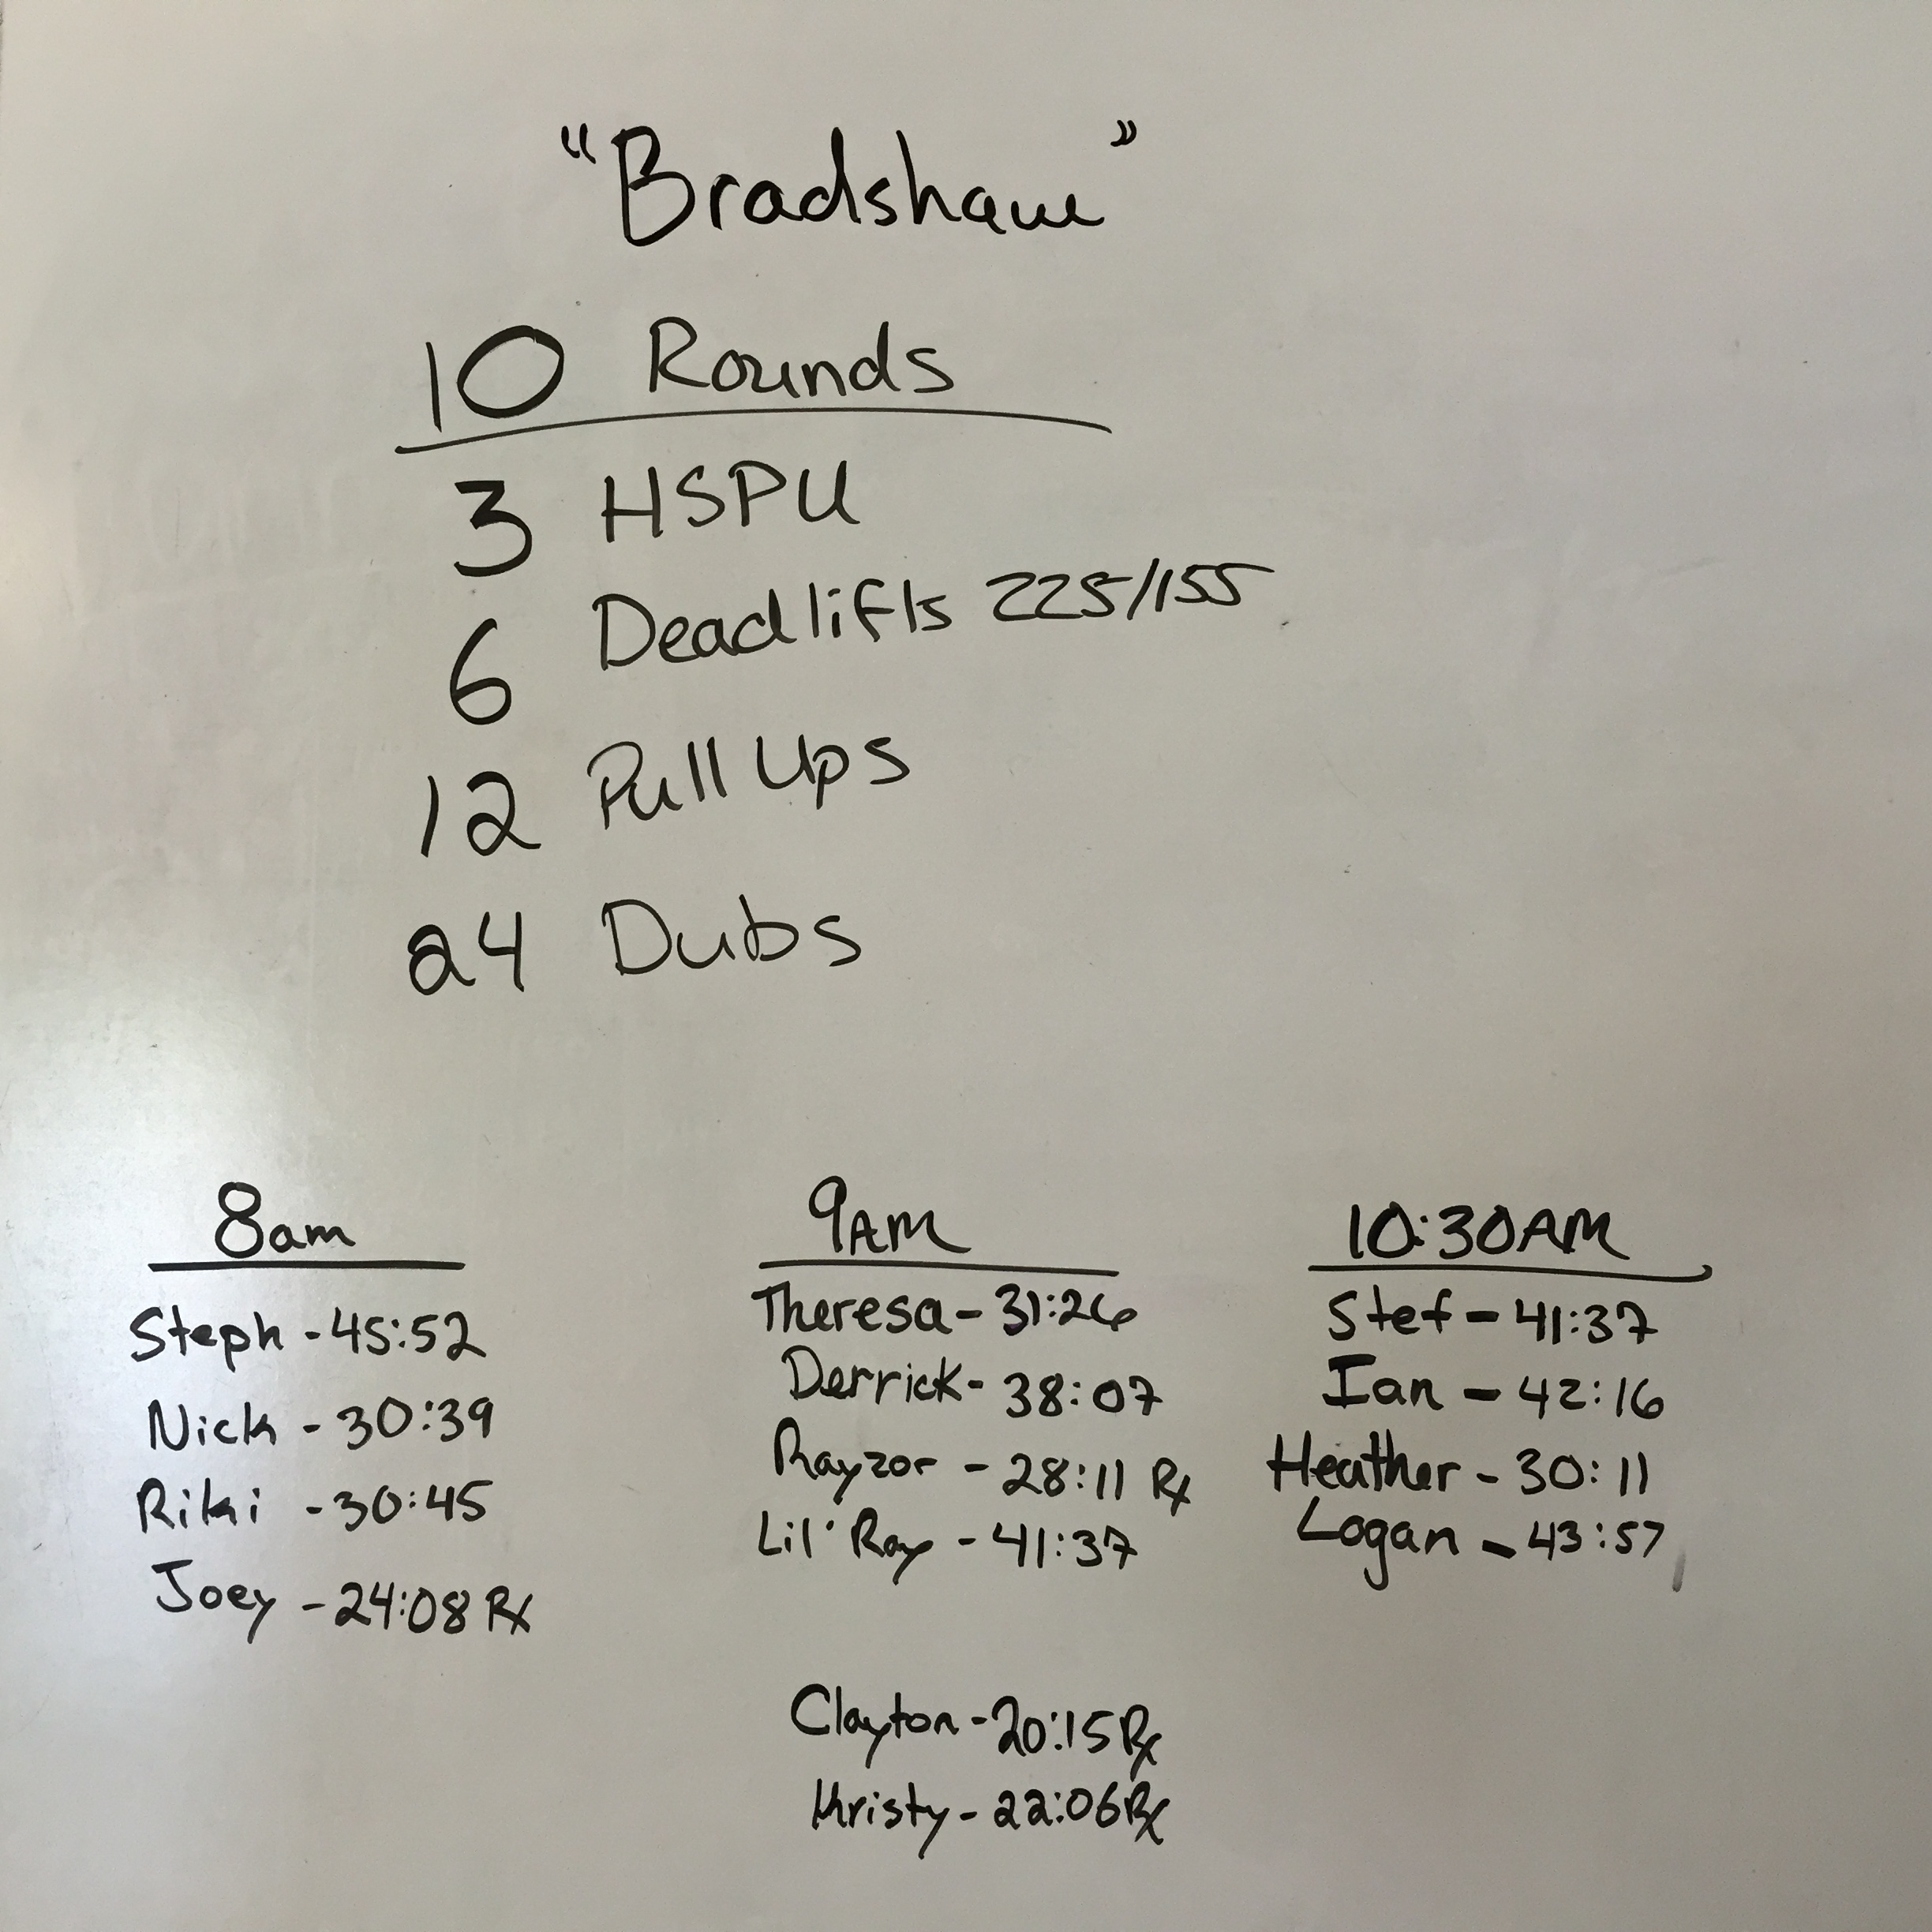 "Bradshaw"
10 Rounds
3 HSPU
6 Deadlifts 225/155
12 Pull Ups
24 Dubs
8am
Steph - 45:52
Nick - 30:39
Riki - 30:45
Joey - 24:08 Rx
9AM
Theresa - 31:26
Derrick - 38:07
Rayzor - 28:11 Rx
Lil' Ray - 41:37
Clayton - 20:15 Rx
Khristy - 22:06 Rx
10:30AM
Stef - 41:37
Ian - 42:16
Heather - 30:11
Logan - 43:57